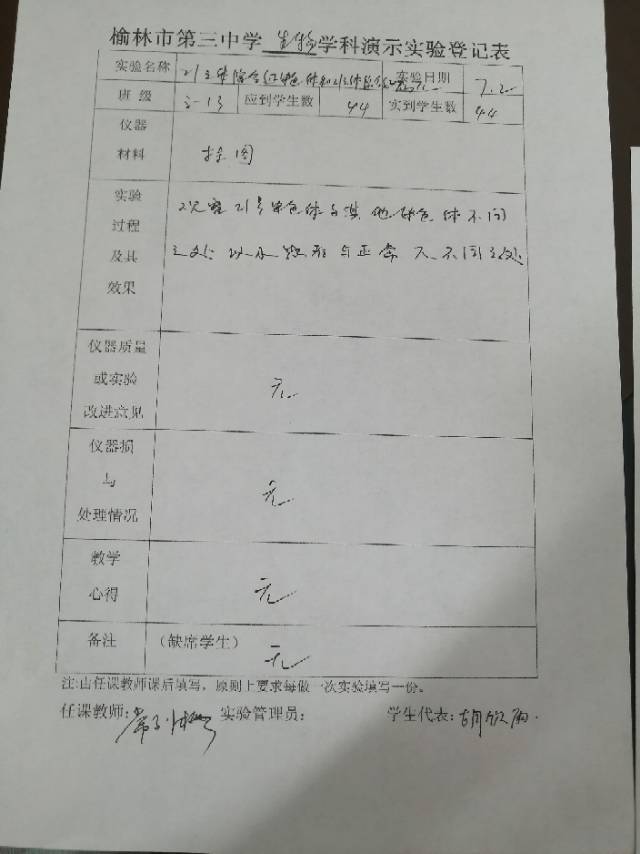 榆林市第三中学 生物 学科演示实验登记表
实验名称 21三体综合征 实验日期 7.2
班 级 2-13 应到学生数 44 实到学生数 44
仪器
材料 挂图
实验
过程
及其
效果
观察21号染色体与其他染色体不同
之处 以及 与正常人不同之处
仪器质量
或实验
改进意见
无
仪器损
与
处理情况
无
教学
心得
无
备注 (缺席学生) 无
注:由任课教师课后填写，原则上要求每做一次实验填写一份。
任课教师: 实验管理员: 学生代表: 胡欣雨